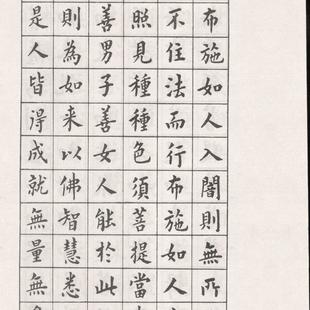 布施如人入闇則無所
不住法而行布施如人
照見種種色須菩提當
善男子善女人能於此
則為如来以佛智慧悉
是人皆得成就無量無